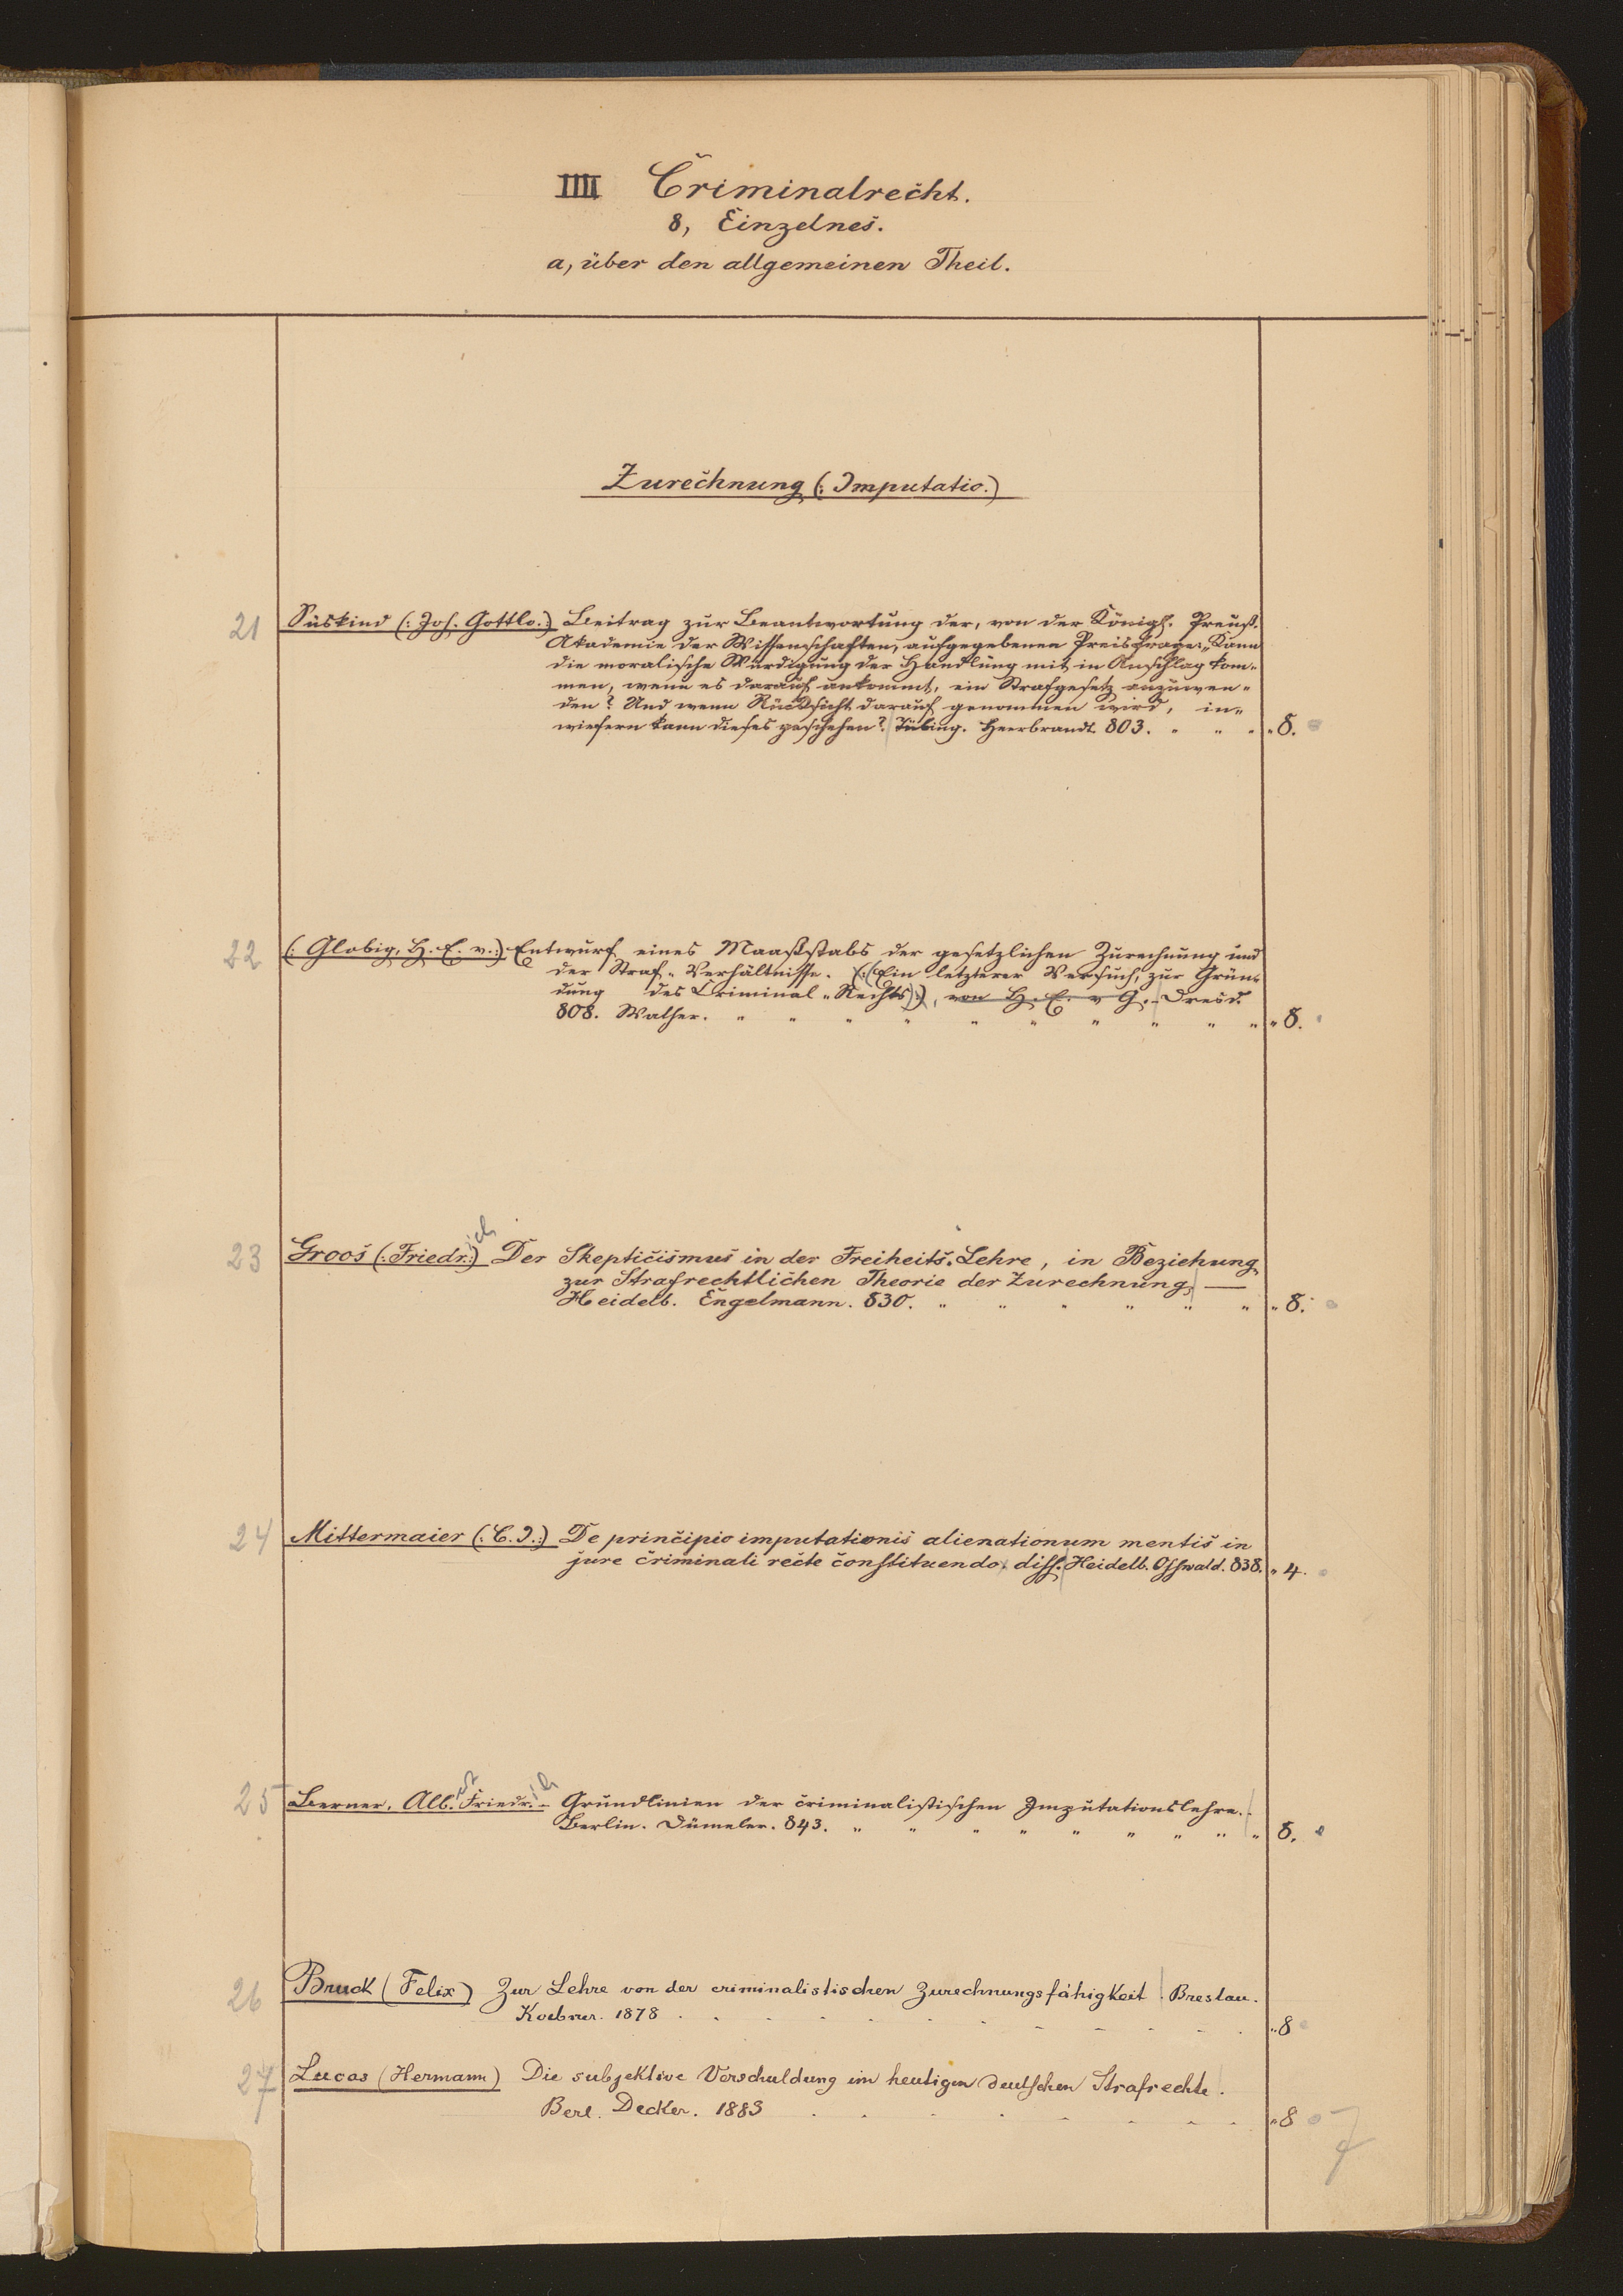 IIII Criminalrecht.
8, Einzelnes.
a, über den allgemeinen Theil.
Zurechnung (: Imputatio.)
21 Süskind (: Joh. Gottlo.:) Beitrag zur Beantwortung der, von der Königl. Preuß.
Akademie der Wissenschaften, aufgegebenen Preisfrage: „Kann
die moralische Würdigung der Handlung mit in Anschlag kom-
men, wenn es darauf ankommt, ein Strafgesetz anzuwen-
den? Und wenn Rücksicht darauf genommen wird, in-
wiefern kann dieses geschehen? Tübing. Heerbrandt. 803. " " " " 8.
22 (: Globig, H. E. v.:) Entwurf eines Maaßstabs der gesetzlichen Zurechnung und
der Straf-Verhältnisse. (:(Ein letzterer Versuch, zur Grün-
dung des Criminal-Rechts):), von H. E. v G. - Dresd.
808. Walther. " " " " " " " " " " " 8.
23 Groos (: Friedr.:)ich Der Skepticismus in der Freiheits-Lehre, in Beziehung
zur Strafrechtlichen Theorie der Zurechnung, —
Heidelb. Engelmann. 830. " " " " " " " 8.
24 Mittermaier (: C. J.:) De principio imputationis alienationum mentis in
jure criminali recte constituendo. diss. Heidelb. Osswald. 838. " 4.
25 Berner, Alb. Friedr.ich - Grundlinien der criminalistischen Imputationslehre. -
Berlin. Dümeler. 843. " " " " " " " " " 8.
26 Bruck (Felix) Zur Lehre von der criminalistischen Zurechnungsfähigkeit. Breslau.
Koebner. 1878 . . . . . . . . . . . " 8
27 Lucas (Hermann) Die subjektive Verschuldung im heutigen deutschen Strafrechte.
Berl. Decker. 1883 . . . . . . . . " 8
7